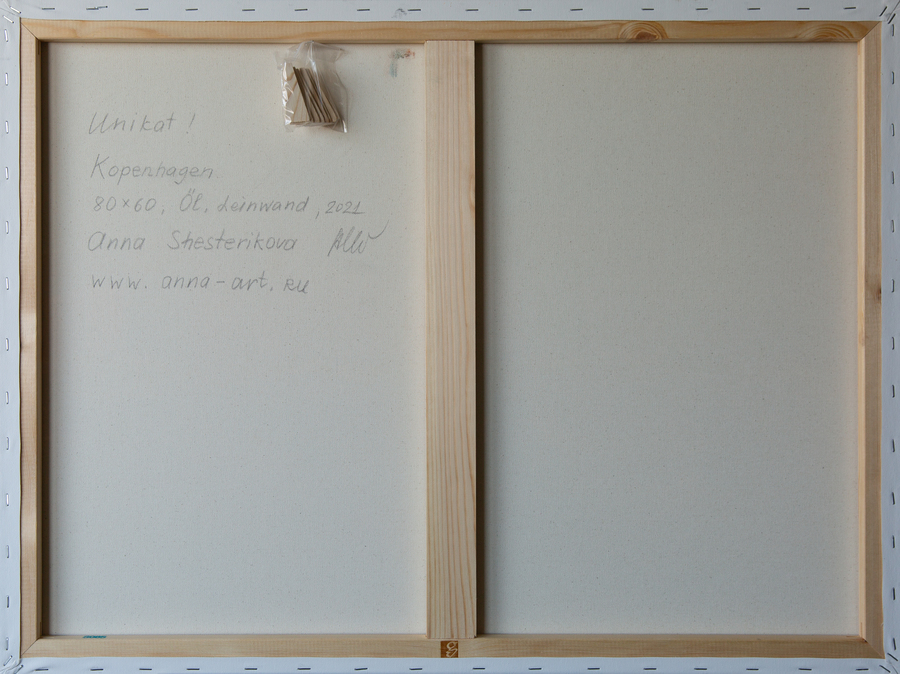 Unikat!
Kopenhagen
80×60, Öl, Leinwand, 2021
Anna Shesterikova
www.anna-art.ru